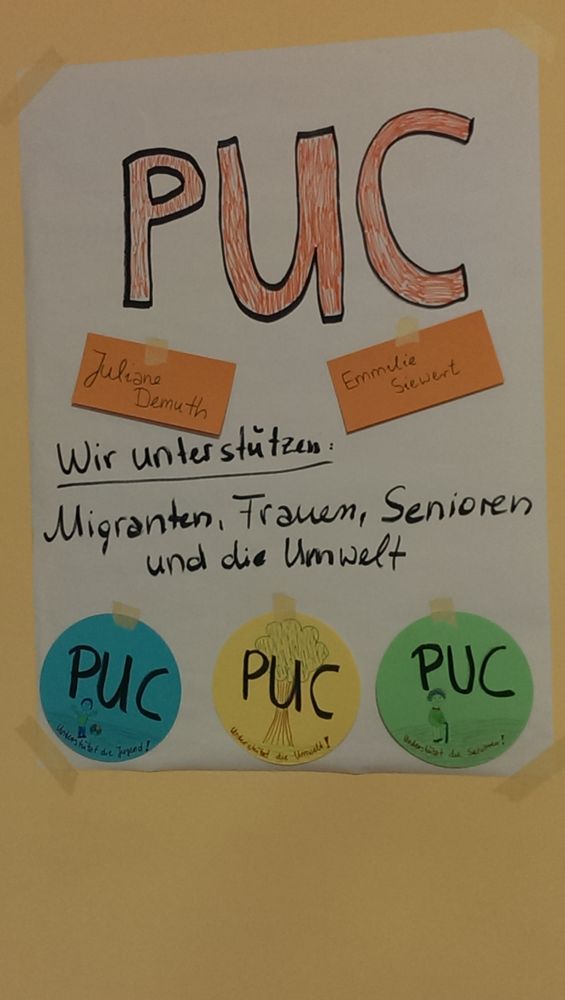 PUC
Juliane
Demuth
Emmilie
Siewert
Wir unterstützen:
Migranten, Frauen, Senioren
und die Umwelt
PUC
Unterstützt die Jugend!
PUC
Unterstützt die Umwelt!
PUC
Unterstützt die Senioren!